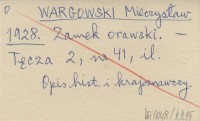 WARGOWSKI Mieczysław.
1928. Zamek orawski. —
Tęcza 2, na 41, il.
Opis hist. i krajoznawczy.